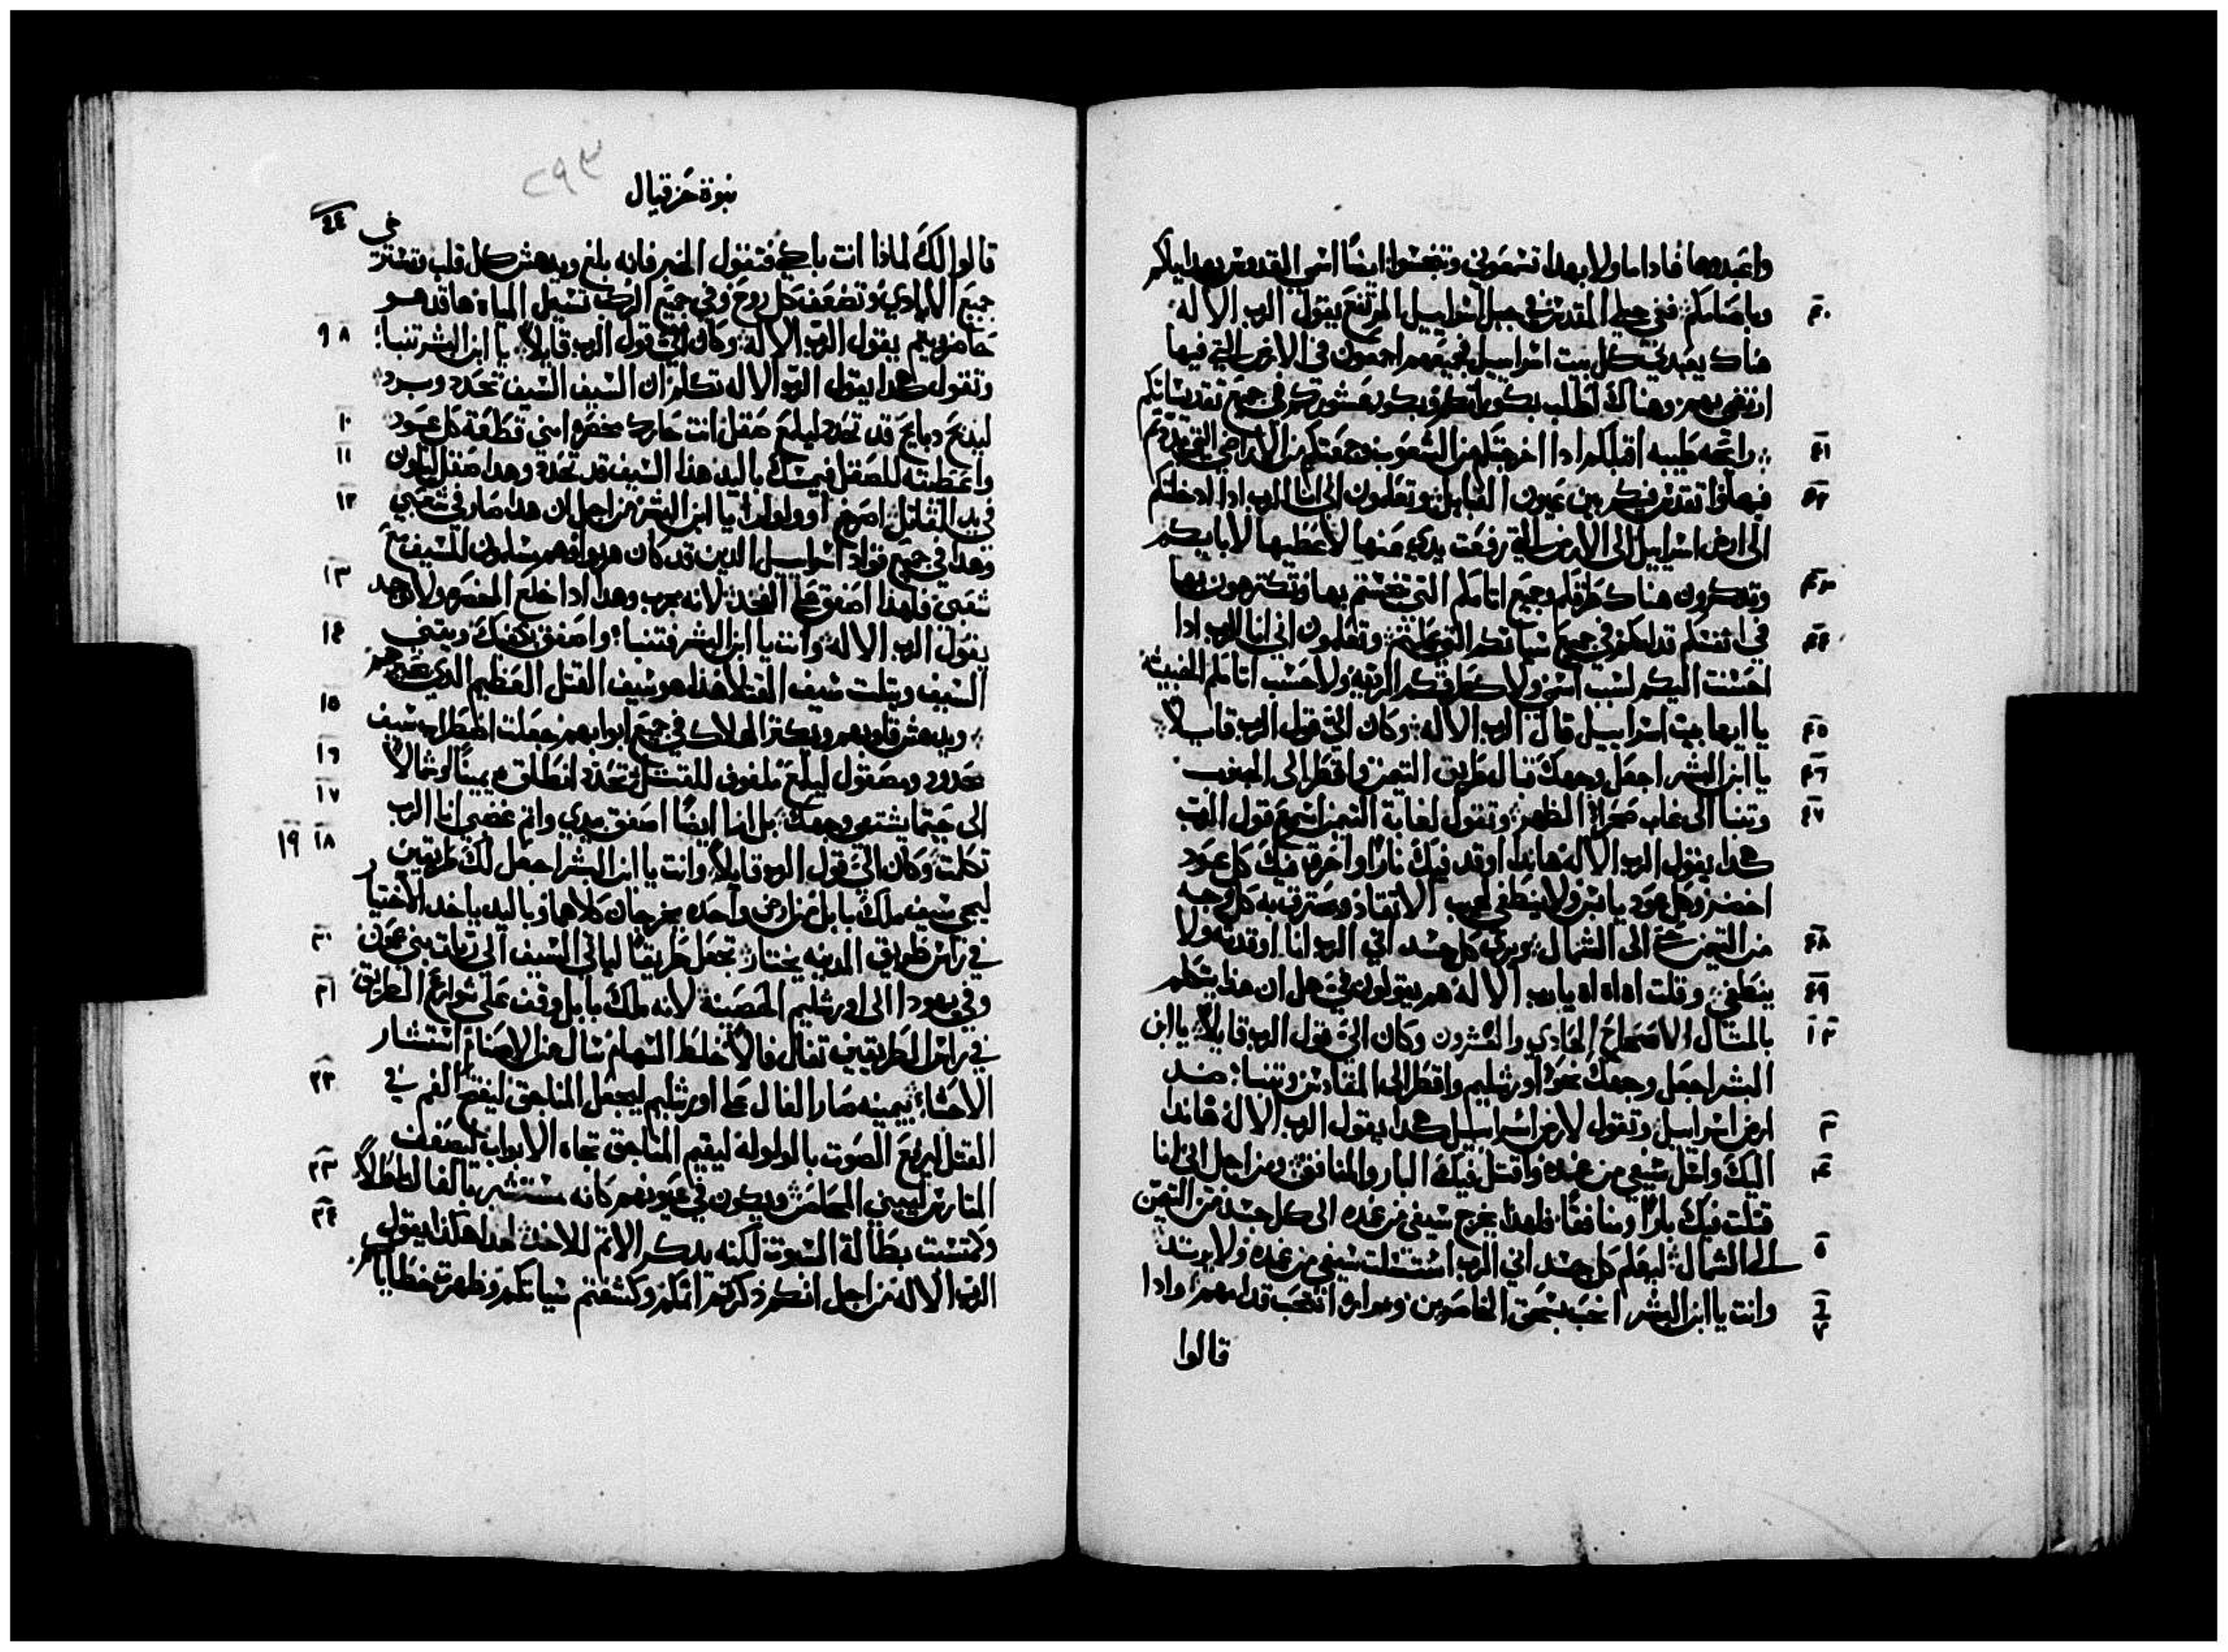 واعبدوها فاداما ولا بهدا تسمعوني وتنجسوا ايضًا اسمي القدوس بهداياكم
٤٠ وباصنامكم ففي جبلي المقدس في جبل اسراييل المرتفع يقول الرب الاله
هناك يعبدني كل بيت اسراييل فجميعهم اجمعون في الارض التي فيها
ارتضي بهم وهناك اطلب بكوراتكم وبكور عشوركم في جميع تقديساتكم
٤١ رايحه طيبه اقبلكم ادا اخرجتكم من الشعوب وجمعتكم من الاراضي التي تبددتم
٤٢ فيها واتقدس فيكم بين عيون القبايل وتعلمون اني انا الرب ادا ادخلتكم
الى ارض اسراييل الى الارض التي رفعت يدي عنها لاعطيها لابايكم
٤٣ وتدكرون هناك طرقكم وجميع اتامكم التي تنجستم بها وتكترهون بها
٤٤ في انفسكم قدامكم في جميع سياتكم التي عملتم وتعلمون اني انا الرب ادا
احسنت اليكم لسبب اسمي ولا كطرقكم الرديه ولا حسب اتامكم الخبيثه
٤٥ يا ايها بيت اسراييل قال الرب الاله وكان اليّ قول الرب قايلاً
٤٦ يا ابن البشر اجعل وجهك قباله طريق التيمن واقطر الى الجنوب
٤٧ وتنبا الى غاب صحراء الظهر وتقول لغابة التيمن اسمع قول الرب
هكدا يقول الرب الاله هاندا اوقد فيك نارًا واحرق فيك كل عود
اخضر وكل عود يابس ولا ينطفي لهيب الاتقاد ويحترق به كل وجه
٤٨ من التيمن حتى الى الشمال ويرى كل جسد اني الرب انا اوقدته ولا
٤٩ ينطفي وقلت اه اه اه يا رب الاله هم يقولون فيّ هل ان هدا يتكلم
بالمثال الاصحاح الحادي والعشرون وكان اليّ قول الرب قايلاً يا ابن
البشر اجعل وجهك نحو اورشليم واقطر الى المقادس وتنبا ضد
٣ ارض اسراييل وتقول لارض اسراييل هكدا يقول الرب الاله هاندا
٤ اليك واسل سيفي من غمده واقتل فيك البار والمنافق ومن اجل اني انا
قتلت فيك بارًا ومنافقًا فلهدا يخرج سيفي من غمده الى كل جسد من التيمن
٥ الى الشمال ليعلم كل جسد اني الرب استللت سيفي من غمده ولا يرتد
٦ ٧ وانت يا ابن البشر انتحب بسحق الخاصرين ومراره انتحب قدامهم وادا
قالوا
٢٩٣
نبوة حزقيال
قالوا لك لماذا انت باكي فتقول الخبر فانه بلغ ويدهش كل قلب وتسترخي
جميع الايادي وتضعف كل روح وفي جميع الركب تسيل المياه ها قد هو
٨ ٩ حاضر ويتم يقول الرب الاله وكان اليّ قول الرب قايلاً يا ابن البشر تنبا
وتقول هكدا يقول الرب الاله تكلم ان السيف السيف تحدد وبرد
١٠ ليدبح دبايح قد تحدد ليلمع صقل انت حارك مخصرة ابني قطعة كل عود
١١ واعطيته للصقل فيمسك باليد هذا السيف قد تحدد وهدا صقل ليكون
١٢ في يد القاتل اصرخ وولول يا ابن البشر من اجل ان هدا صار في شعبي
وهدا في جميع قواد اسراييل الدين قد كان هربوا فهم مسلمون للسيف مع
١٣ شعبي فلهدا اصفق على الفخد لانه مجرب وهدا ادا خلع المخصره ولا يوجد
١٤ يقول الرب الاله وانت يا ابن البشر فتنبا واصفق بكفك ويتني
السيف ويتلت سيف القتلا هذا هو سيف القتل العظيم الدي يحيرهم
١٥ ويدهش قلوبهم ويكتر الهلاك في جميع ابوابهم جعلت اضطراب سيف
١٦ محدود ومصقول ليلمع ملفوف للقتل تحدد انطلق يمينًا او شمالاً
١٧ الى حيتما يشتهي وجهك بل انا ايضًا اصفق بيدي واتم غضبي انا الرب
١٨ ١٩ تكلمت وكان اليّ قول الرب قايلاً وانت يا ابن البشر اجعل لك طريقين
ليجي سيف ملك بابل من ارض واحده يخرجان كلاهما وباليد ياخد الاختيار
٢٠ في راس طريق المدينه يختار تجعل طريقًا لياتي السيف الى ربات بني عمون
٢١ وفي يهودا الى اورشليم الحصينة لانه ملك بابل وقف على شوارع الطريق
في راس الطريقين تفال فالاً خلط السهام سال من الاصنام استشار
٢٢ الاحشاء بيمينه صار الفال على اورشليم ليجعل المناجق ليفتح الفم في
القتل ليرفع الصوت بالولوله ليقيم المناجق تجاه الابواب ليصف
٢٣ المتاريس ليبني المحامس ويكون في عيونهم كانه مستشير بالفال باطلاً
٢٤ وكمتسبت بطالة السبوت لكنه يدكر الاتم للاخد لهدا هكذا يقول
الرب الاله من اجل انكم دكرتم اتمكم وكشفتم سياتكم وظهرت خطاياكم